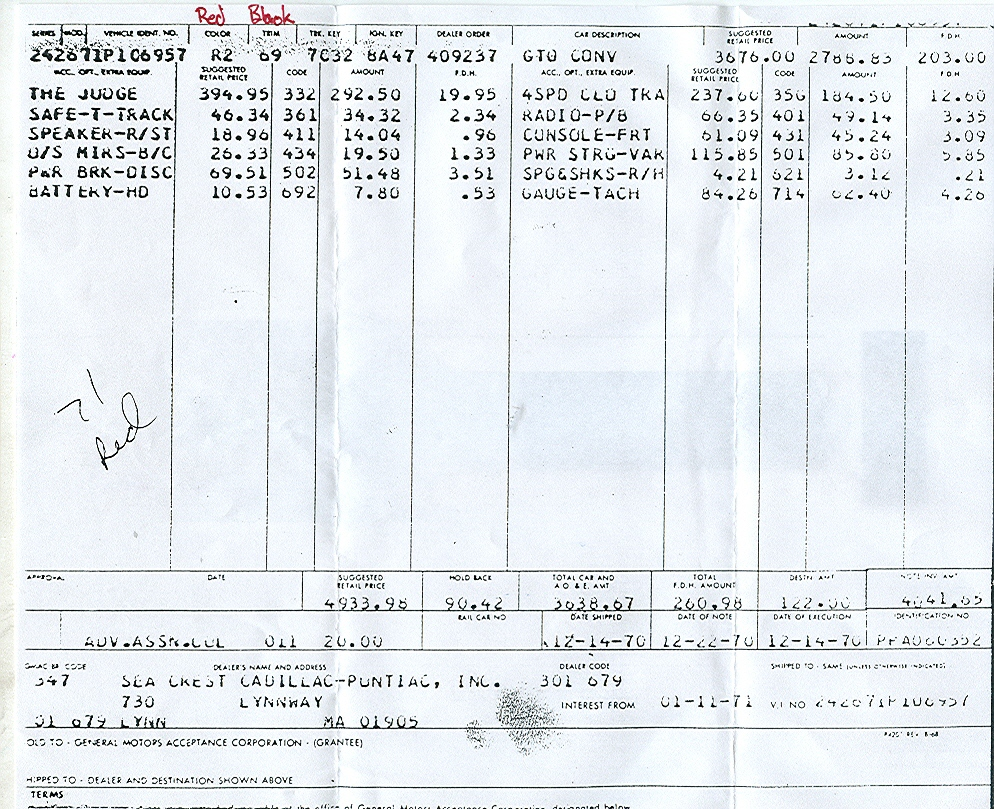 Red Black
SERIES MOD. VEHICLE IDENT. NO. COLOR TRIM TRK. KEY IGN. KEY DEALER ORDER CAR DESCRIPTION SUGGESTED RETAIL PRICE AMOUNT F.D.H.
242671P106957 R2 69 7C32 8A47 409237 GTO CONV 3676.00 2788.83 203.00
ACC., OPT., EXTRA EQUIP. SUGGESTED RETAIL PRICE CODE AMOUNT F.D.H. ACC., OPT., EXTRA EQUIP. SUGGESTED RETAIL PRICE CODE AMOUNT F.D.H.
THE JUDGE 394.95 332 292.50 19.95 4SPD CLO TRA 237.60 356 184.50 12.60
SAFE-T-TRACK 46.34 361 34.32 2.34 RADIO-P/B 66.35 401 49.14 3.35
SPEAKER-R/ST 18.96 411 14.04 .96 CONSOLE-FRT 61.09 431 45.24 3.09
O/S MIRS-B/C 26.33 434 19.50 1.33 PWR STRG-VAR 115.85 501 85.80 5.85
PWR BRK-DISC 69.51 502 51.48 3.51 SPG&SHKS-R/H 4.21 621 3.12 .21
BATTERY-HD 10.53 692 7.80 .53 GAUGE-TACH 84.26 714 62.40 4.26
71
Red
APPROVAL DATE SUGGESTED RETAIL PRICE HOLD BACK TOTAL CAR AND A.O. & E. AMT TOTAL F.D.H. AMOUNT DESTN. AMT NOTE INV. AMT
4933.98 90.42 3638.67 260.98 122.00 4041.65
RAIL CAR NO DATE SHIPPED DATE OF NOTE DATE OF EXECUTION IDENTIFICATION NO
ADV.ASSN.COL 011 20.00 12-14-70 12-22-70 12-14-70
GMAC BR CODE DEALER'S NAME AND ADDRESS DEALER CODE SHIPPED TO - SAME (UNLESS OTHERWISE INDICATED)
347 SEA CREST CADILLAC-PONTIAC, INC. 301 679
730 LYNNWAY INTEREST FROM 01-11-71 V.I. NO 242671P106957
01 679 LYNN MA 01905
OLD TO - GENERAL MOTORS ACCEPTANCE CORPORATION - (GRANTEE)
HIPPED TO - DEALER AND DESTINATION SHOWN ABOVE
TERMS
the office of General Motors Acceptance Corporation designated below